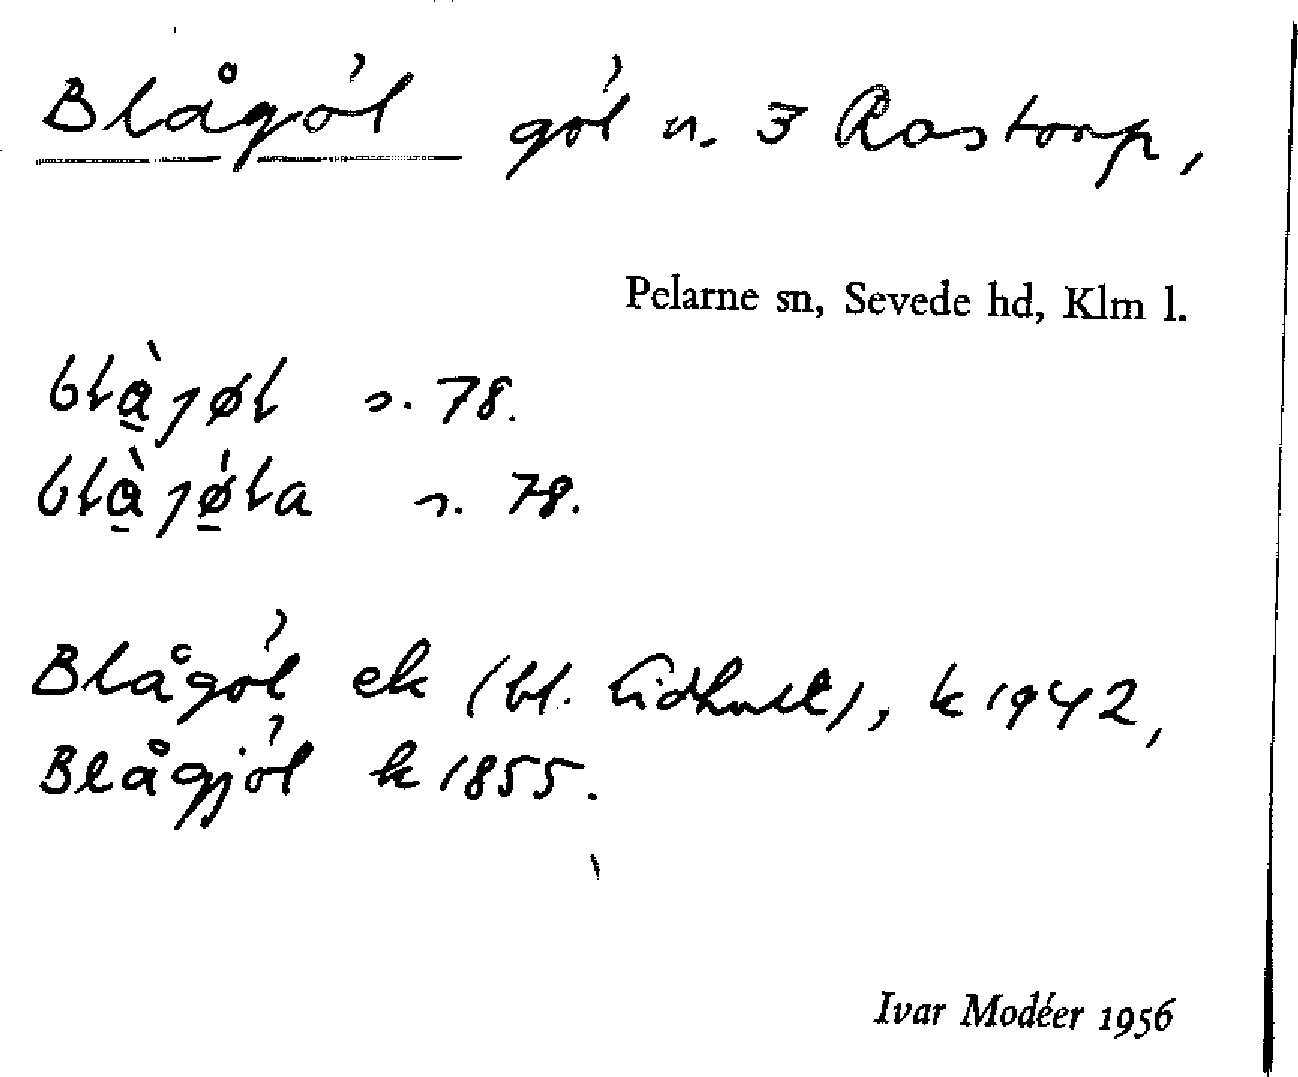 Blågöl göl n. 3 Rostorp,
Pelarne sn, Sevede hd, Klm l.
blàjøl s. 78.
blàjǿla s. 78.
Blågöl ek (bl. Lidhult), k 1942,
Blågjöl k 1855.
Ivar Modéer 1956